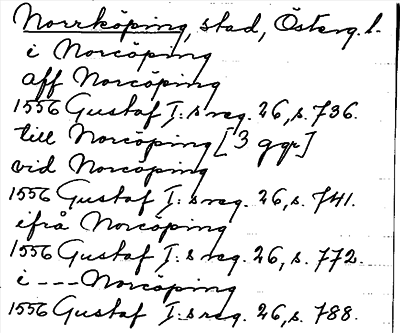 Norrköping, stad, Österg. l.
i Norcöping
aff Norcöping
1556 Gustaf I:s reg. 26, s. 736.
till Norcöping [3 ggr]
vid Norcöping
1556 Gustaf I:s reg. 26, s. 741.
ifrå Norcöping
1556 Gustaf I:s reg. 26, s. 772.
i --- Norcöping
1556 Gustaf I:s reg. 26, s. 788.